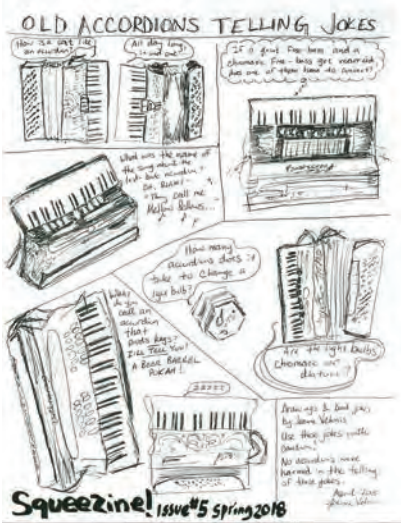 OLD ACCORDIONS TELLING JOKES
How is a cat like
an accordion?
All day long:
in and out!
If a giant Free-bass and a
chromatic Free-bass get married,
does one of them have to convert?
What was the name of
the song about the
accordion?
Oh, Right!
"They call me
Mellow Bellows...
How many
accordions does it
take to change a
light bulb?
Are the light bulbs
chromatic or
diatonic?
What
do you
call an
accordion
that
needs kegs?
I'll Tell You!
A BEER BARREL
POLKA!
ZZZZZ
Drawings & bad jokes
by
Use these jokes with
caution!
No accordions were
harmed in the telling
of these jokes.
April
Squeezine! Issue #5 Spring 2018